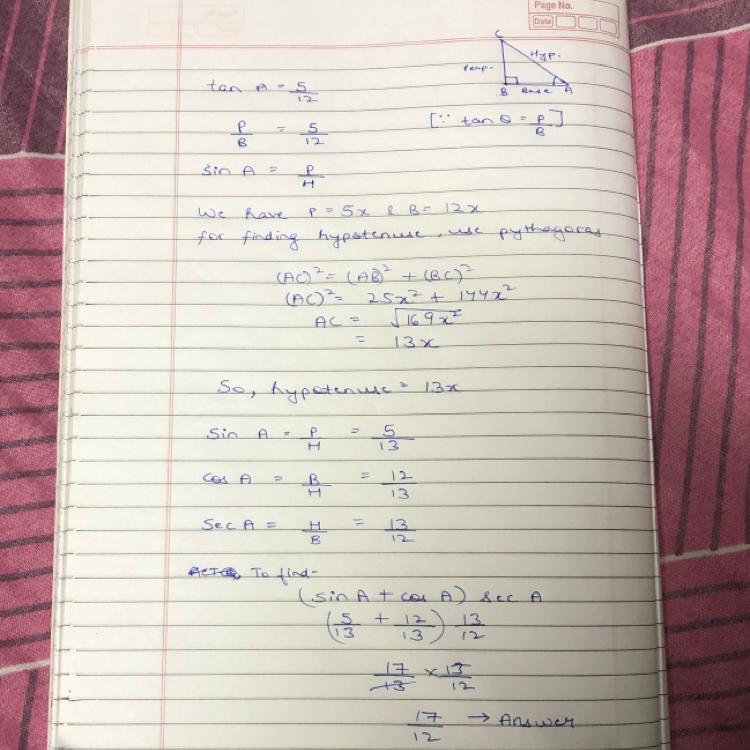 Page No.
Date
C
Hyp.
Perp.
B Base A
tan A = 5/12
P/B = 5/12 [∵ tan θ = P/B]
sin A = P/H
We have P = 5x & B = 12x
for finding hypotenuse, use pythagoras
(AC)² = (AB)² + (BC)²
(AC)² = 25x² + 144x²
AC = √169x²
= 13x
So, hypotenuse = 13x
sin A = P/H = 5/13
cos A = B/H = 12/13
Sec A = H/B = 13/12
To find-
(sin A + cos A) sec A
(5/13 + 12/13) 13/12
17/13 × 13/12
17/12 → Answer